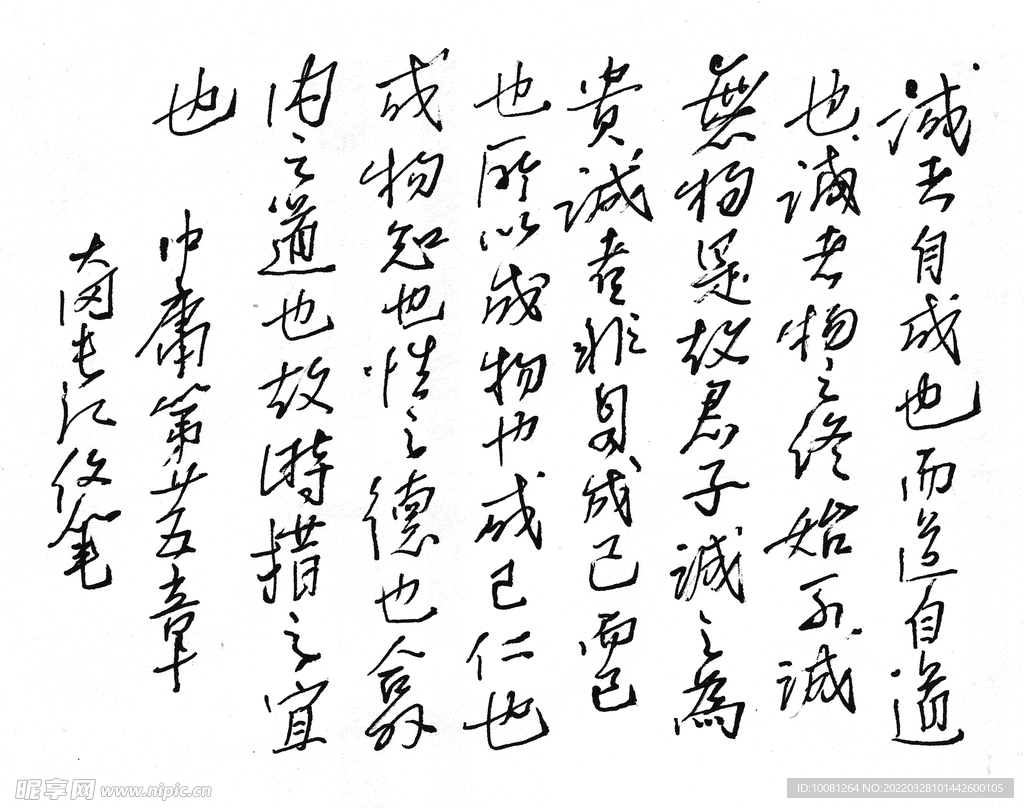 誠者自成也而道自道
也誠者物之終始不誠
無物是故君子誠之為
貴誠者非自成己而已
也所以成物也成己仁也
成物知也性之德也合外
內之道也故時措之宜
也 中庸第廿五章
大 筆
昵享网 www.nipic.cn
ID:10081264 NO:20220328101442600105